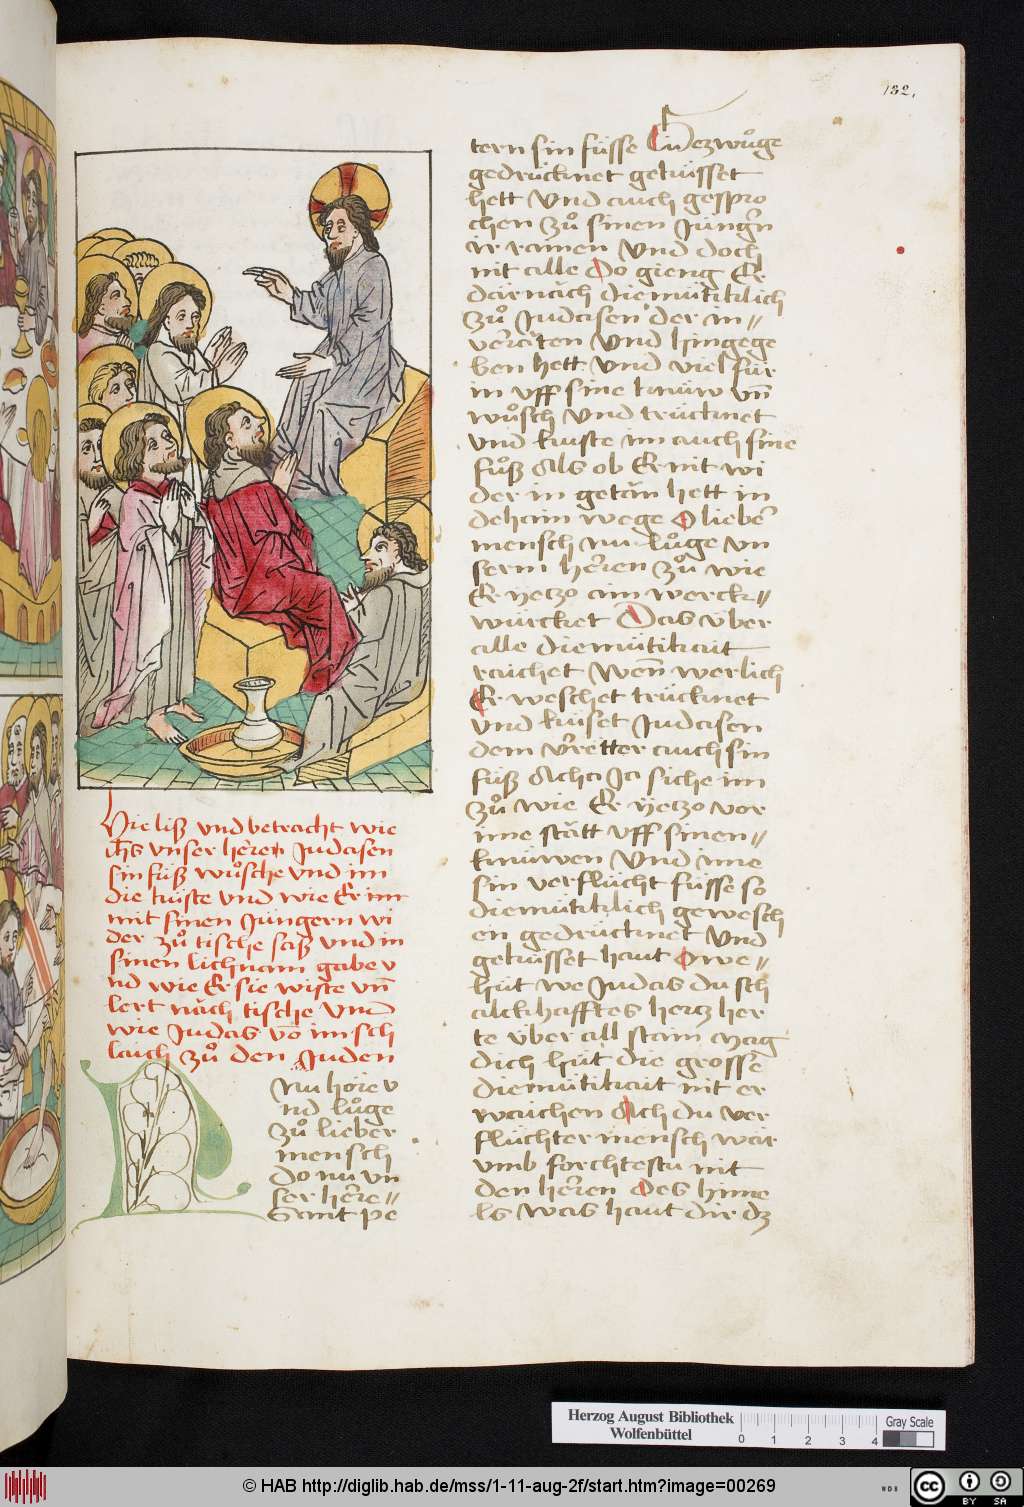 132.
Hie liß vnd betracht wie
ih̄s vnser heren Judasen
sin füß wuͦsche vnd im
die kúste vnd wie Er im
mit sinen Jungern wi
der zuͦ tische saß vnd in
sinen lichnam gabe v
nd wie Er sie wiste vn̄
lert nǎch tische Vnd
wie Judas vō im sch
laich zuͦ den Juden
Nu hoͤre v
nd luͦge
zuͦ lieber
mensch
do nu vn
ser here=
Sant pe
tern sin füsse Hezwuͦge
gedrücknet geküsset
hett Vnd auch gespro
chen zuͦ sinen Jungn̄
ir rainen Vnd doch
nit alle Do gieng Er
dar nǎch diemütiklich
zuͦ Judasen der in=
verǎten Vnd hingege
ben hett Vnd viel für
in vff sine knúw vn̄
wuͦsch Vnd trücknet
vnd kuste im auch sine
fuͦß Als ob Er nit wi
der in getǎn hett in
dehaim wege O lieber
mensch nu luͦge vn
serm heren zuͦ wie
Er yetzo ain werck=
würcket Das über
alle diemütikait
raichet Wen̄ werlich
Er weschet trücknet
vnd küset Judasen
dem v̄rětter auch sin
füß Acha Ja siche im
zuͦ wie Er yetzo vor
ime stǎtt vff sinen=
knüwen Vnd ime
sin verflücht füsse so
diemütiklich gewesch
en gedrücknet Vnd
geküsset haut Owe=
hüt we Judas du sch
alckhafftes hertz her
te über all stain Mag
dich hüt die grosse
diemütikait nit er
waichen Ach du ver
flüchter mensch war
vmb forchtestu nit
den heren des hime
ls Was haut dir dz
Herzog August Bibliothek
Wolfenbüttel
Gray Scale
0 1 2 3 4
© HAB http://diglib.hab.de/mss/1-11-aug-2f/start.htm?image=00269
WDB
cc BY SA